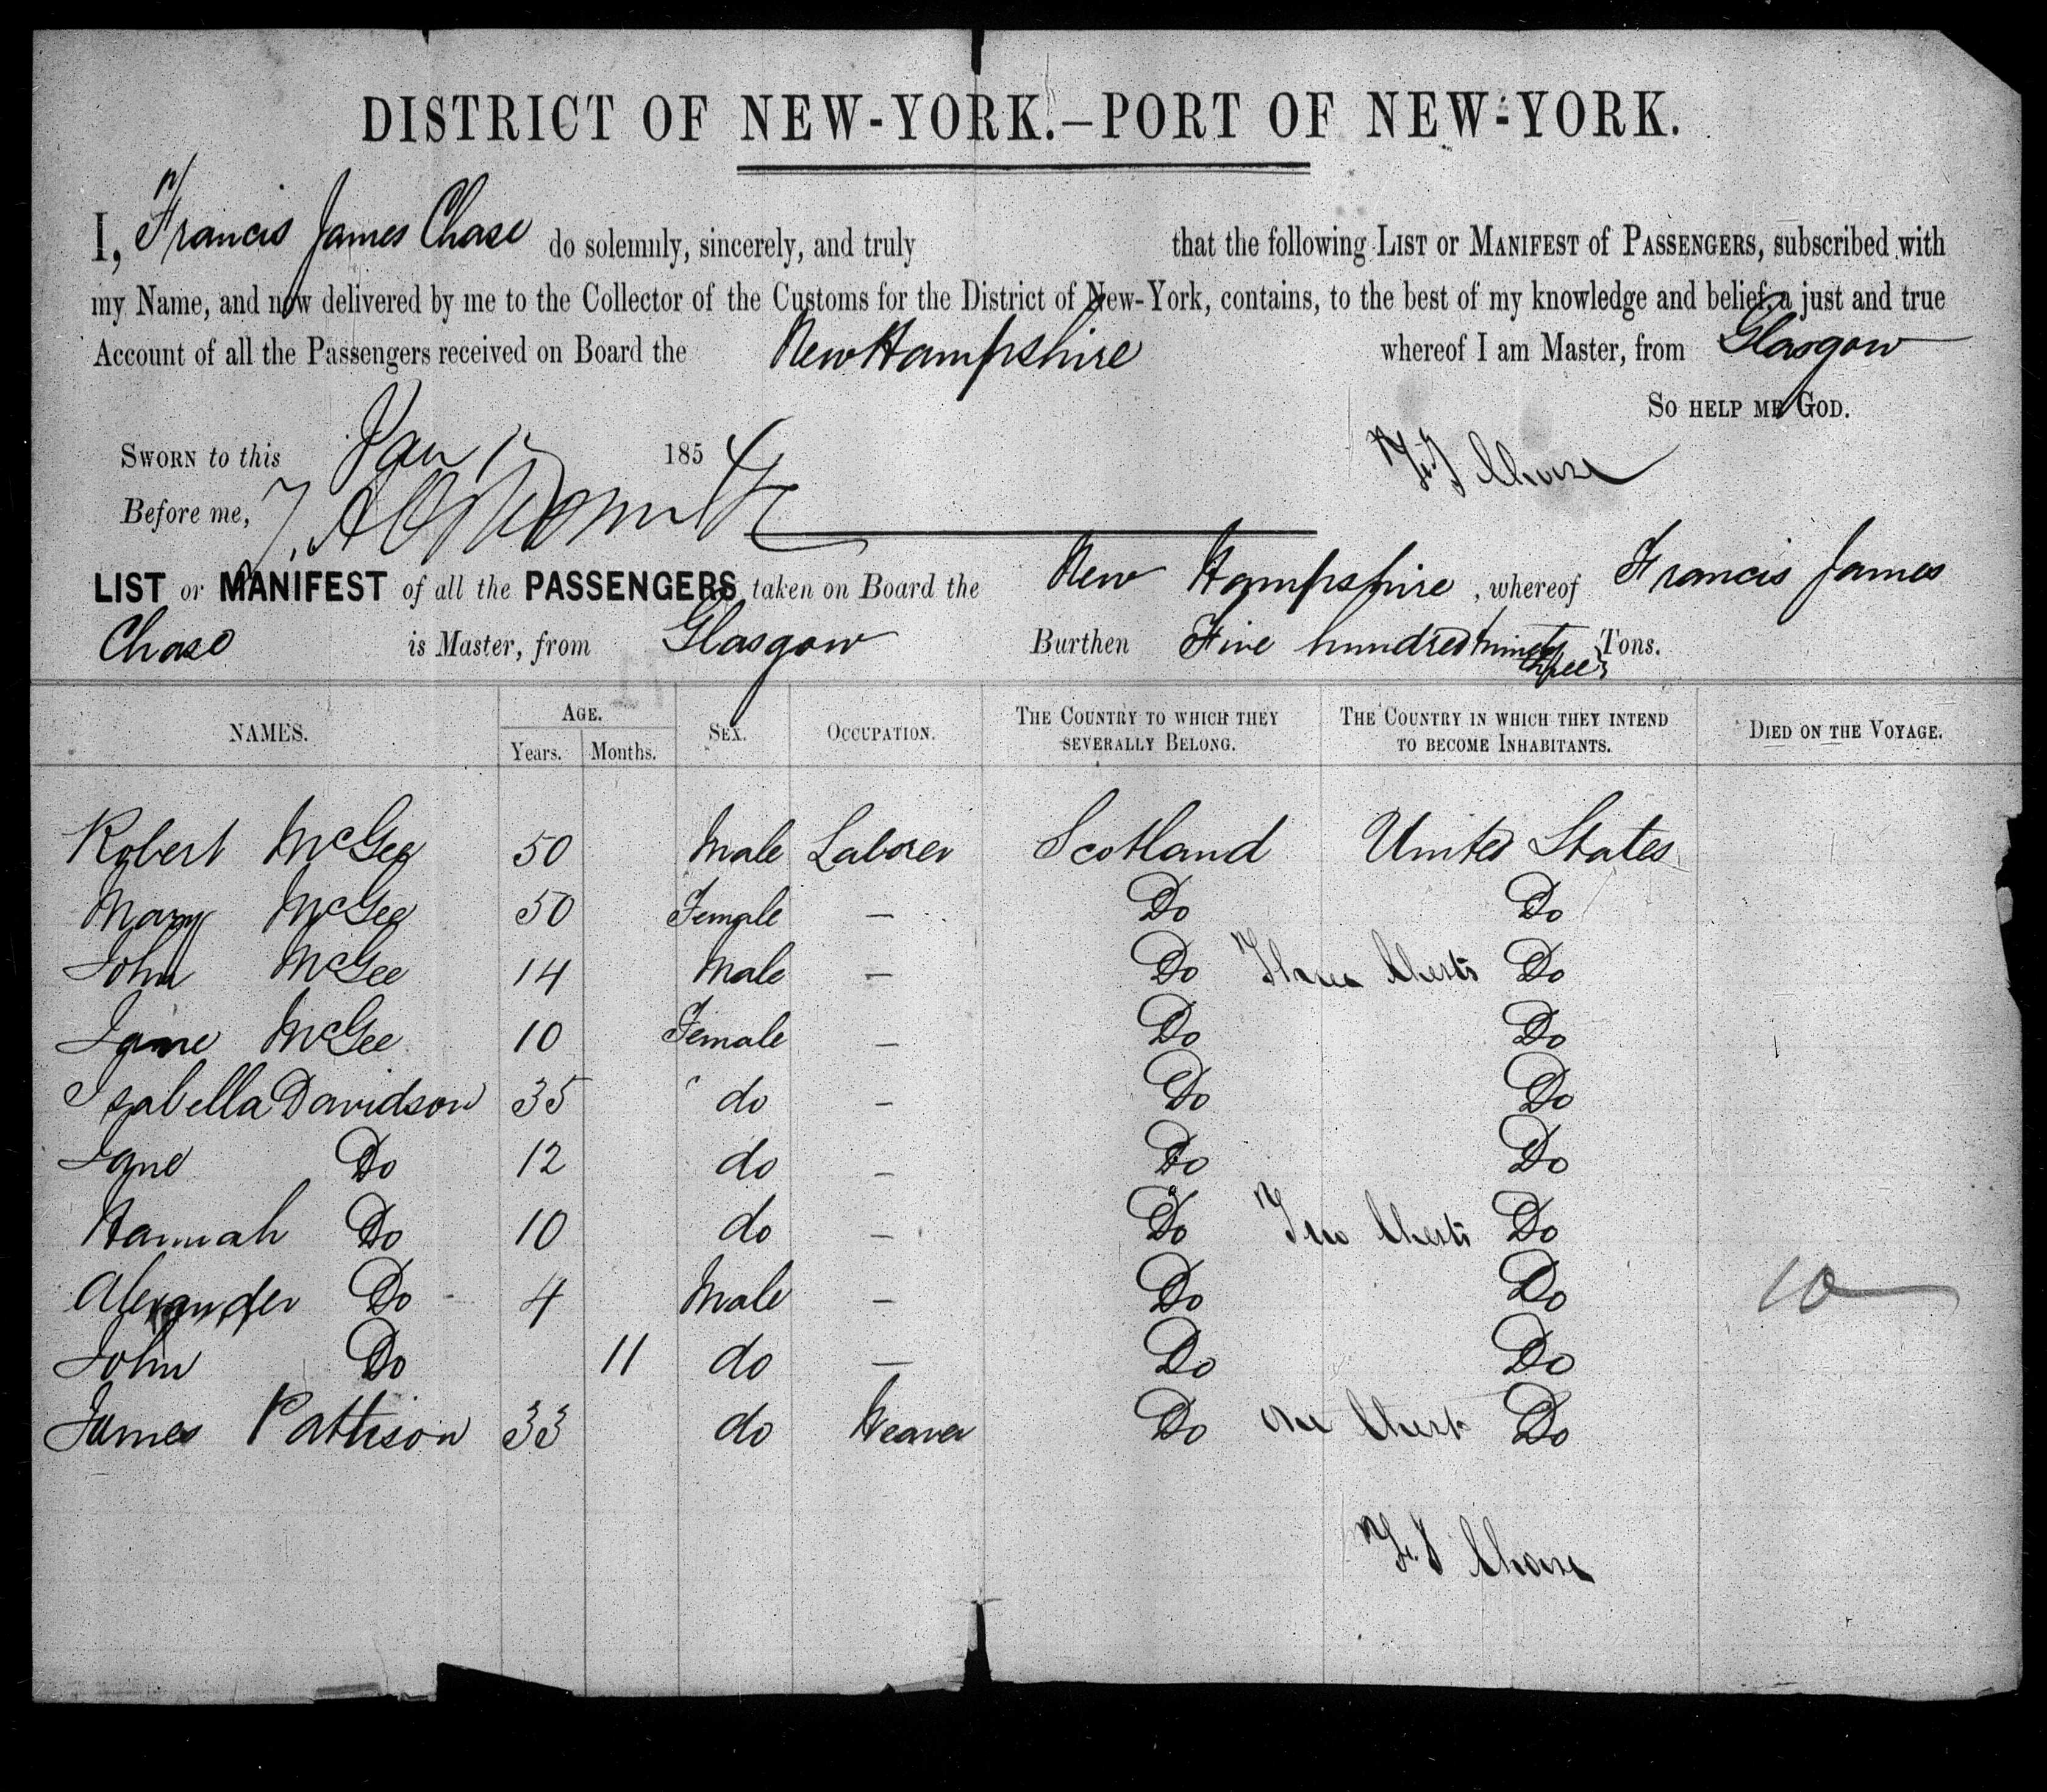 DISTRICT OF NEW-YORK.—PORT OF NEW-YORK.
I, Francis James Chase do solemnly, sincerely, and truly that the following LIST OR MANIFEST OF PASSENGERS, subscribed with
my Name, and now delivered by me to the Collector of the Customs for the District of New-York, contains, to the best of my knowledge and belief, a just and true
Account of all the Passengers received on Board the New Hampshire whereof I am Master, from Glasgow
SO HELP ME GOD.
SWORN to this Jan 185 4 F J Chase
Before me,
LIST or MANIFEST of all the PASSENGERS taken on Board the New Hampshire, whereof Francis James
Chase is Master, from Glasgow Burthen Five hundred ninety three Tons.
NAMES. AGE. SEX. OCCUPATION. THE COUNTRY TO WHICH THEY SEVERALLY BELONG. THE COUNTRY IN WHICH THEY INTEND TO BECOME INHABITANTS. DIED ON THE VOYAGE.
Years. Months.
Robert McGee 50 Male Laborer Scotland United States
Mary McGee 50 Female — Do Do
John McGee 14 Male — Do Three Chests Do
Jane McGee 10 Female — Do Do
Isabella Davidson 35 do — Do Do
Jane Do 12 do — Do Do
Hannah Do 10 do — Do Two Chests Do
Alexander Do 4 Male — Do Do 10
John Do 11 do — Do Do
James Pattison 33 do Weaver Do One Chest Do
F J Chase